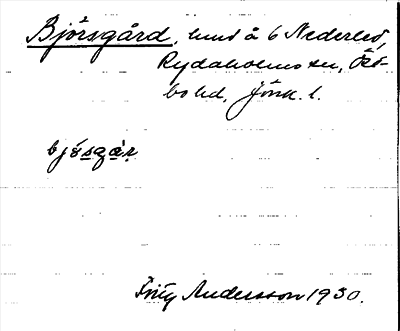 Björsgård, hmd å 6 Nederled,
Rydaholms sn, Öst-
bo hd, Jönk. l.
bjö̱sgår
Fritz Andersson 1930.